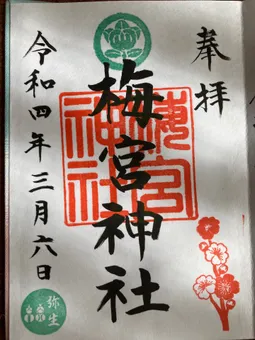 奉拝
梅宮神社
梅宮神社
令和四年三月六日
弥生